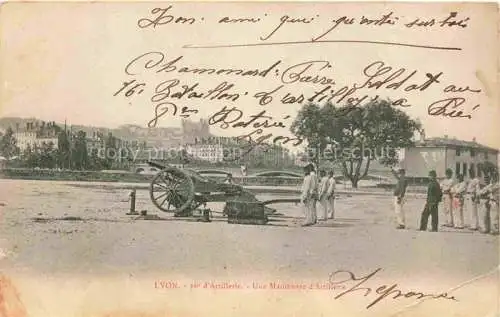 Mon ami qui qu'enté sur bois
Chamonard. Pierre Soldat au
16e Bataillon d'artillerie à Pied
8me Batterie
Lyon
LYON. - 10e d'Artillerie. - Une Manœuvre d'Artillerie
Réponse